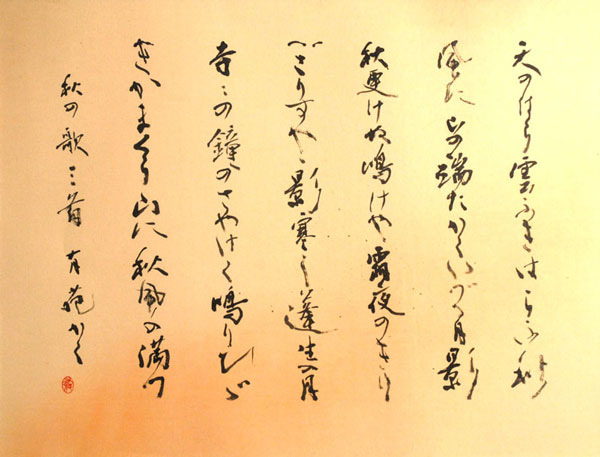 天のはら雲ふきはらふ秋
風に山の端たかくいづる月影
秋更けぬ鳴けや霜夜のきり
ぎりすやゝ影寒し蓬生の月
寺々の鐘のさやけく鳴りひゞ
きかまくら山に秋風の満つ
秋の歌三首 有苑かく